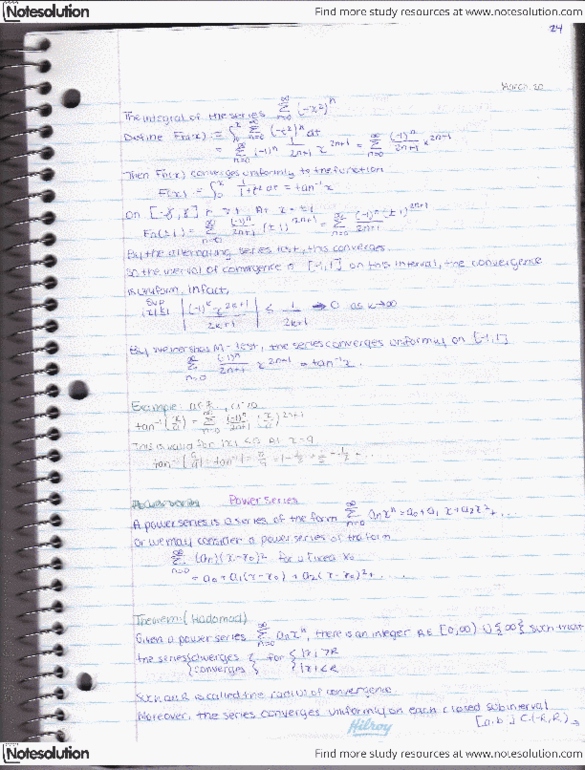 Notesolution
Find more study resources at www.notesolution.com
24
March 20
The integral of the series ∞ Σ n=0 (-x²)ⁿ
Define Fn(x) = ∫₀ˣ Σ n=0 ∞ (-t²)ⁿ dt
= Σ n=0 ∞ (-1)ⁿ 1/2n+1 x²ⁿ⁺¹ = Σ n=0 ∞ (-1)ⁿ/2n+1 x²ⁿ⁺¹
Then Fn(x) converges uniformly to the function
F(x) = ∫₀ˣ 1/1+t² dt = tan⁻¹x
on [-r, r] r < 1 At x = ±1
Fn(±1) = Σ n=0 ∞ (-1)ⁿ/2n+1 (±1)²ⁿ⁺¹ = Σ n=0 ∞ (-1)ⁿ(±1)²ⁿ⁺¹/2n+1
By the alternating series test, this converges.
So the interval of convergence is [-1,1] on this interval, the convergence
is uniform, in fact,
sup |x|≤1 | (-1)ᵏ x²ᵏ⁺¹ / 2k+1 | ≤ 1/2k+1 → 0 as k→∞
By weierstrass M-test, the series converges uniformly on [-1,1]
Σ n=0 ∞ (-1)ⁿ/2n+1 x²ⁿ⁺¹ = tan⁻¹x.
Example:
tan⁻¹(x/a) = Σ n=0 ∞ (-1)ⁿ/2n+1 (x/a)²ⁿ⁺¹
This is valid for |x| < a At x = a
tan⁻¹(a/a) = tan⁻¹(1) = π/4 = 1 - 1/3 + 1/5 - 1/7 + ...
Power Series
A power series is a series of the form Σ n=0 ∞ aₙxⁿ = a₀ + a₁x + a₂x² + ...
Or we may consider a power series of the form
Σ n=0 ∞ (aₙ)(x-x₀)² for a fixed x₀
= a₀ + a₁(x-x₀) + a₂(x-x₀)² + ....
Theorem: (Hadamad)
Given a power series Σ n=0 ∞ aₙxⁿ, there is an integer R ∈ [0,∞) ∪ {∞} such that
the series {diverges converges} for {|x| > R |x| < R
Such an R is called the radius of convergence
Moreover, the series converges uniformly on each closed subinterval
[a,b] ⊂ (-R,R)
Hilroy
Notesolution
Find more study resources at www.notesolution.com